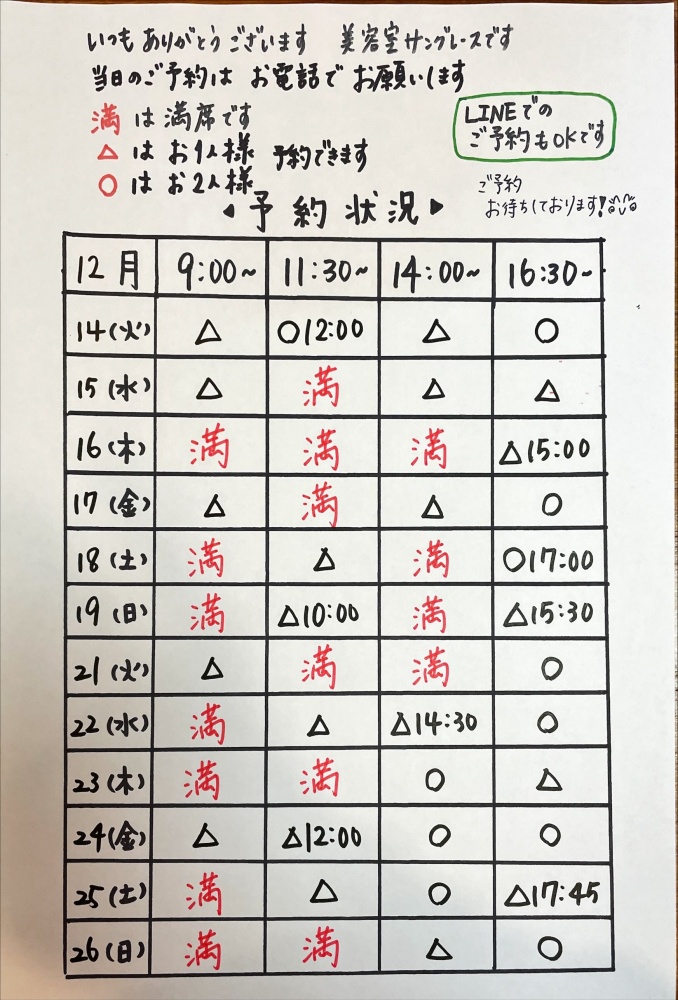 いつもありがとうございます 美容室サングレースです
当日のご予約は お電話で お願いします
満 は満席です
△ はお1人様 予約できます
○ はお2人様
LINEでの
ご予約もOKです
ご予約
お待ちしております!
◀予約状況▶
12月 9:00~ 11:30~ 14:00~ 16:30~
14(火) △ ○12:00 △ ○
15(水) △ 満 △ △
16(木) 満 満 満 △15:00
17(金) △ 満 △ ○
18(土) 満 △ 満 ○17:00
19(日) 満 △10:00 満 △15:30
21(火) △ 満 満 ○
22(水) 満 △ △14:30 ○
23(木) 満 満 ○ △
24(金) △ △12:00 ○ ○
25(土) 満 △ ○ △17:45
26(日) 満 満 △ ○